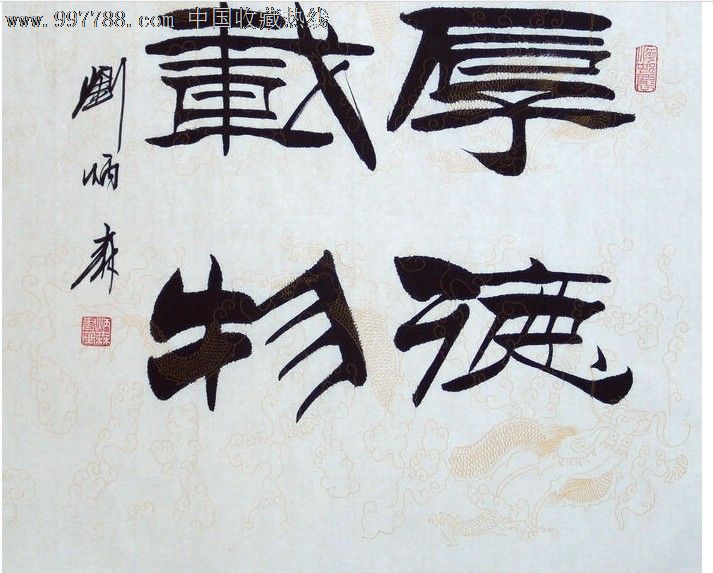 www.997788.com 中国收藏热线
厚德
載物
劉炳森